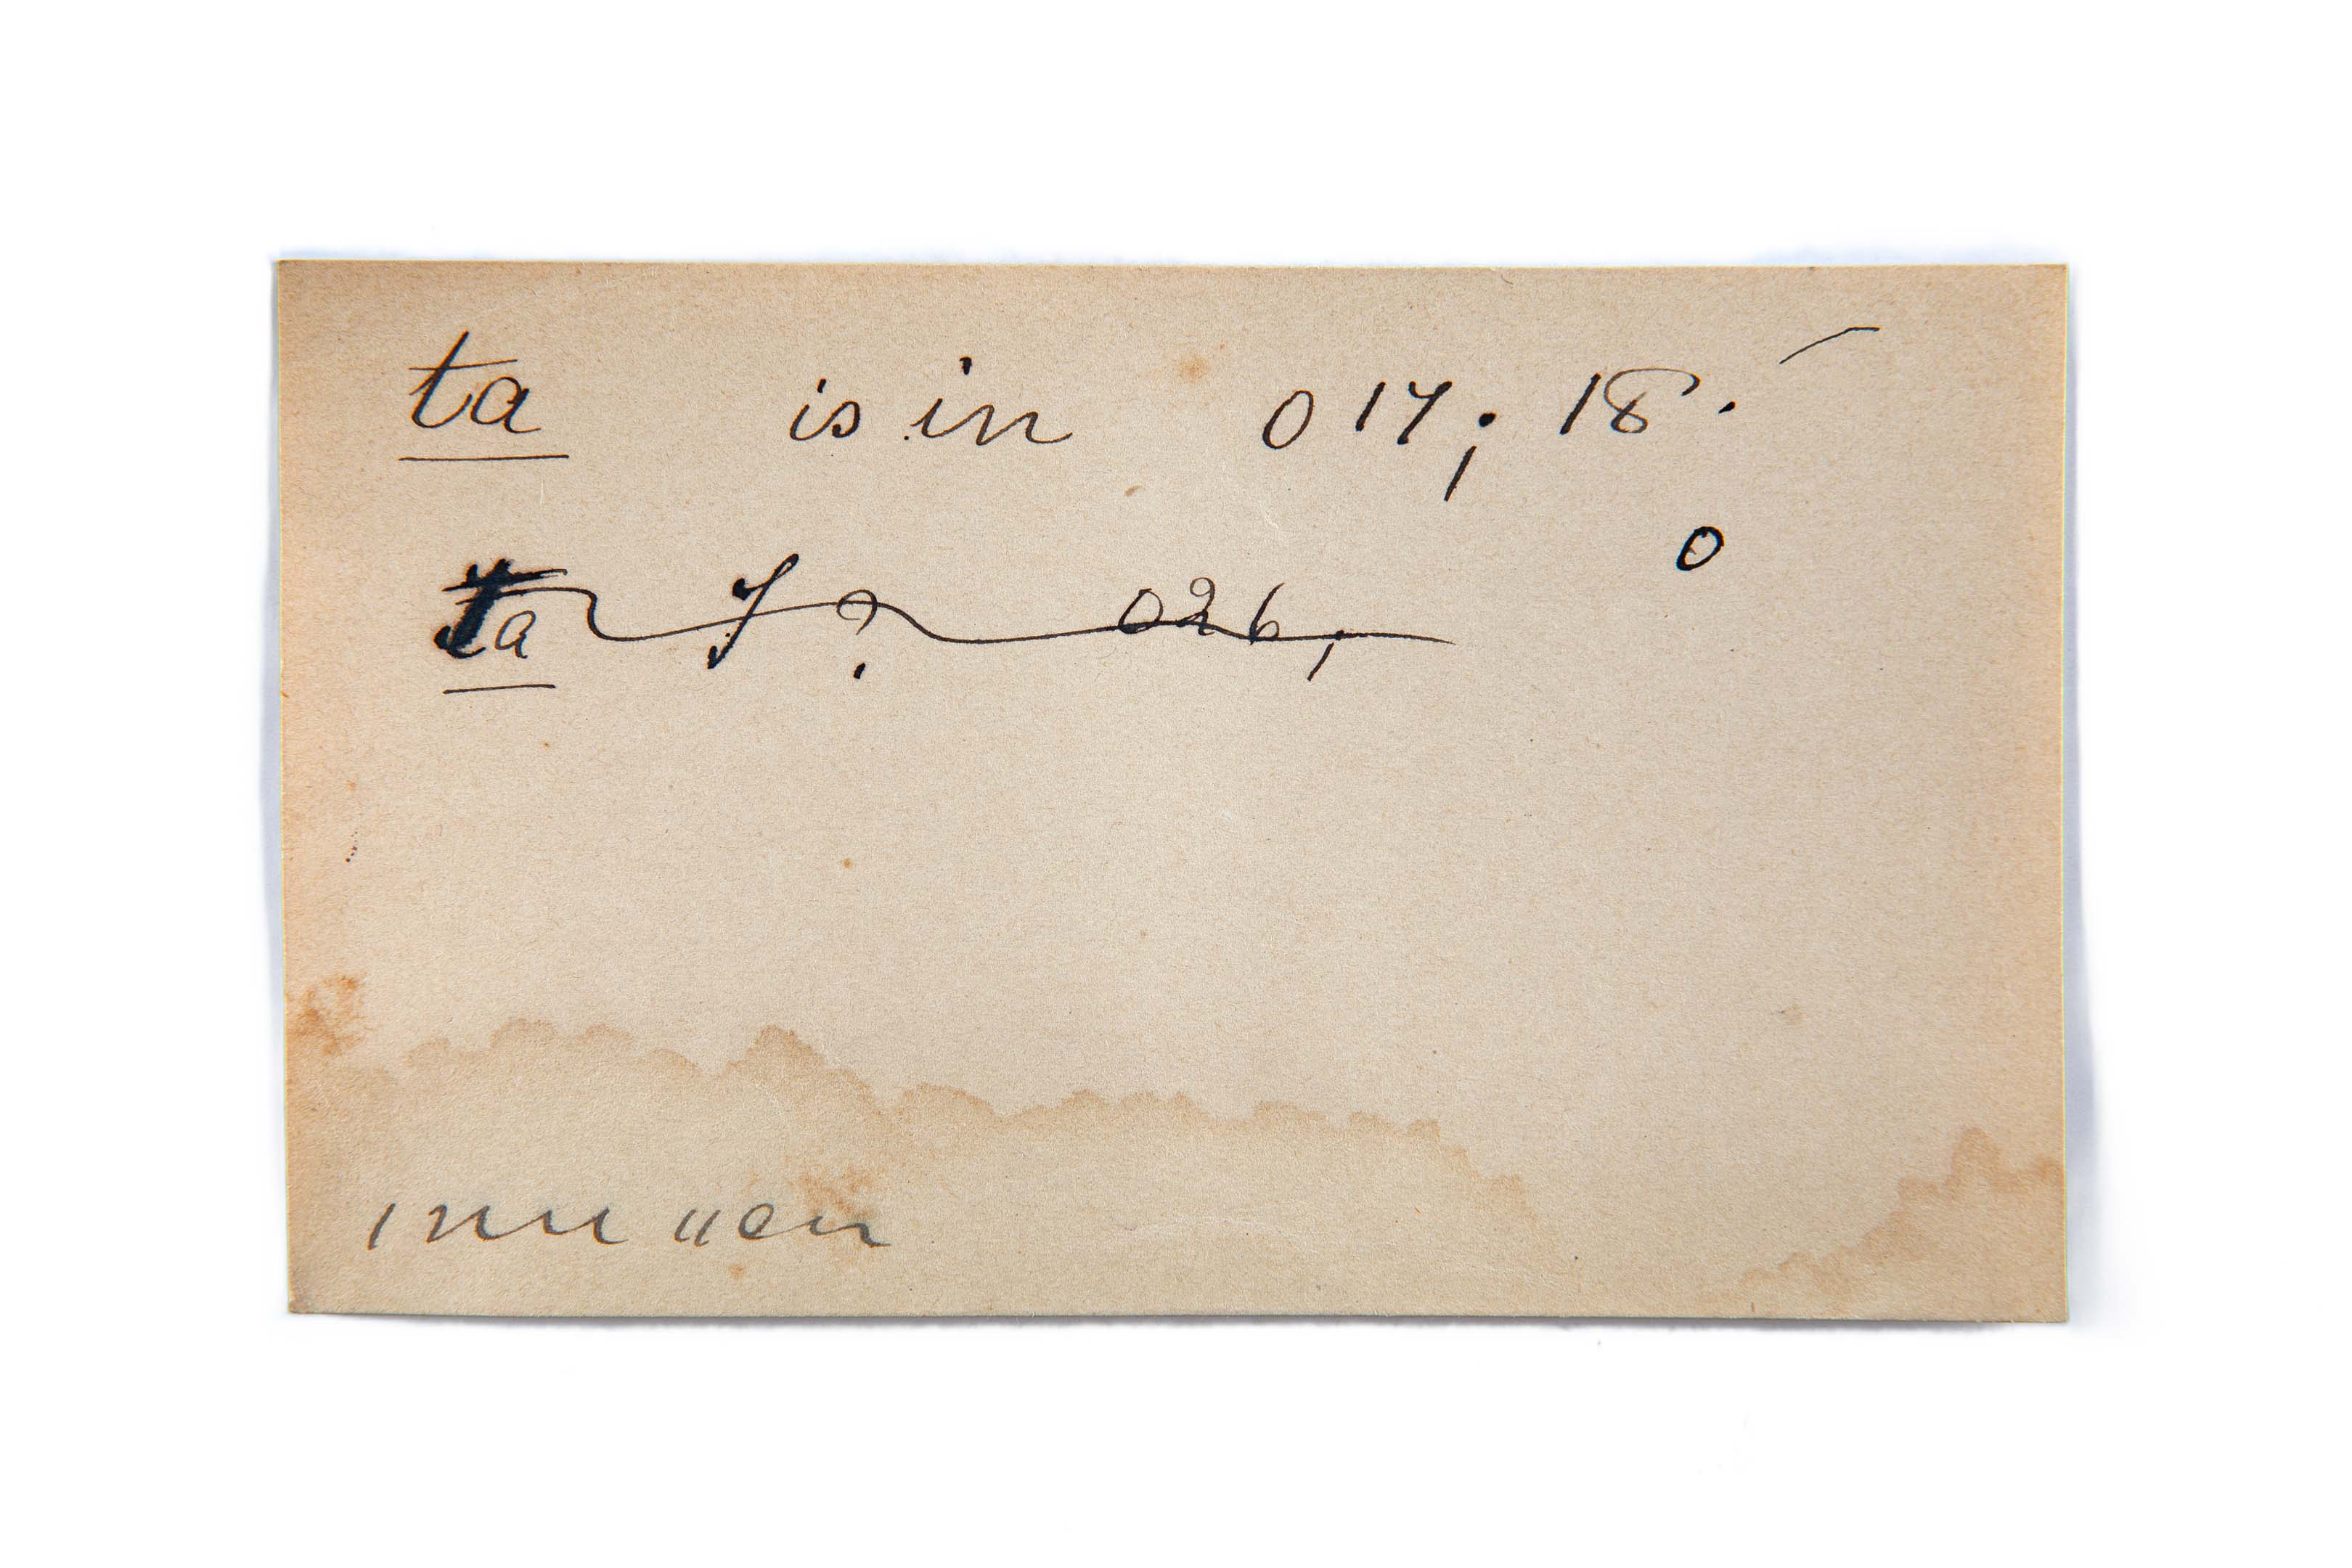 ta is in 017; 18.
0
ta f ? 026,